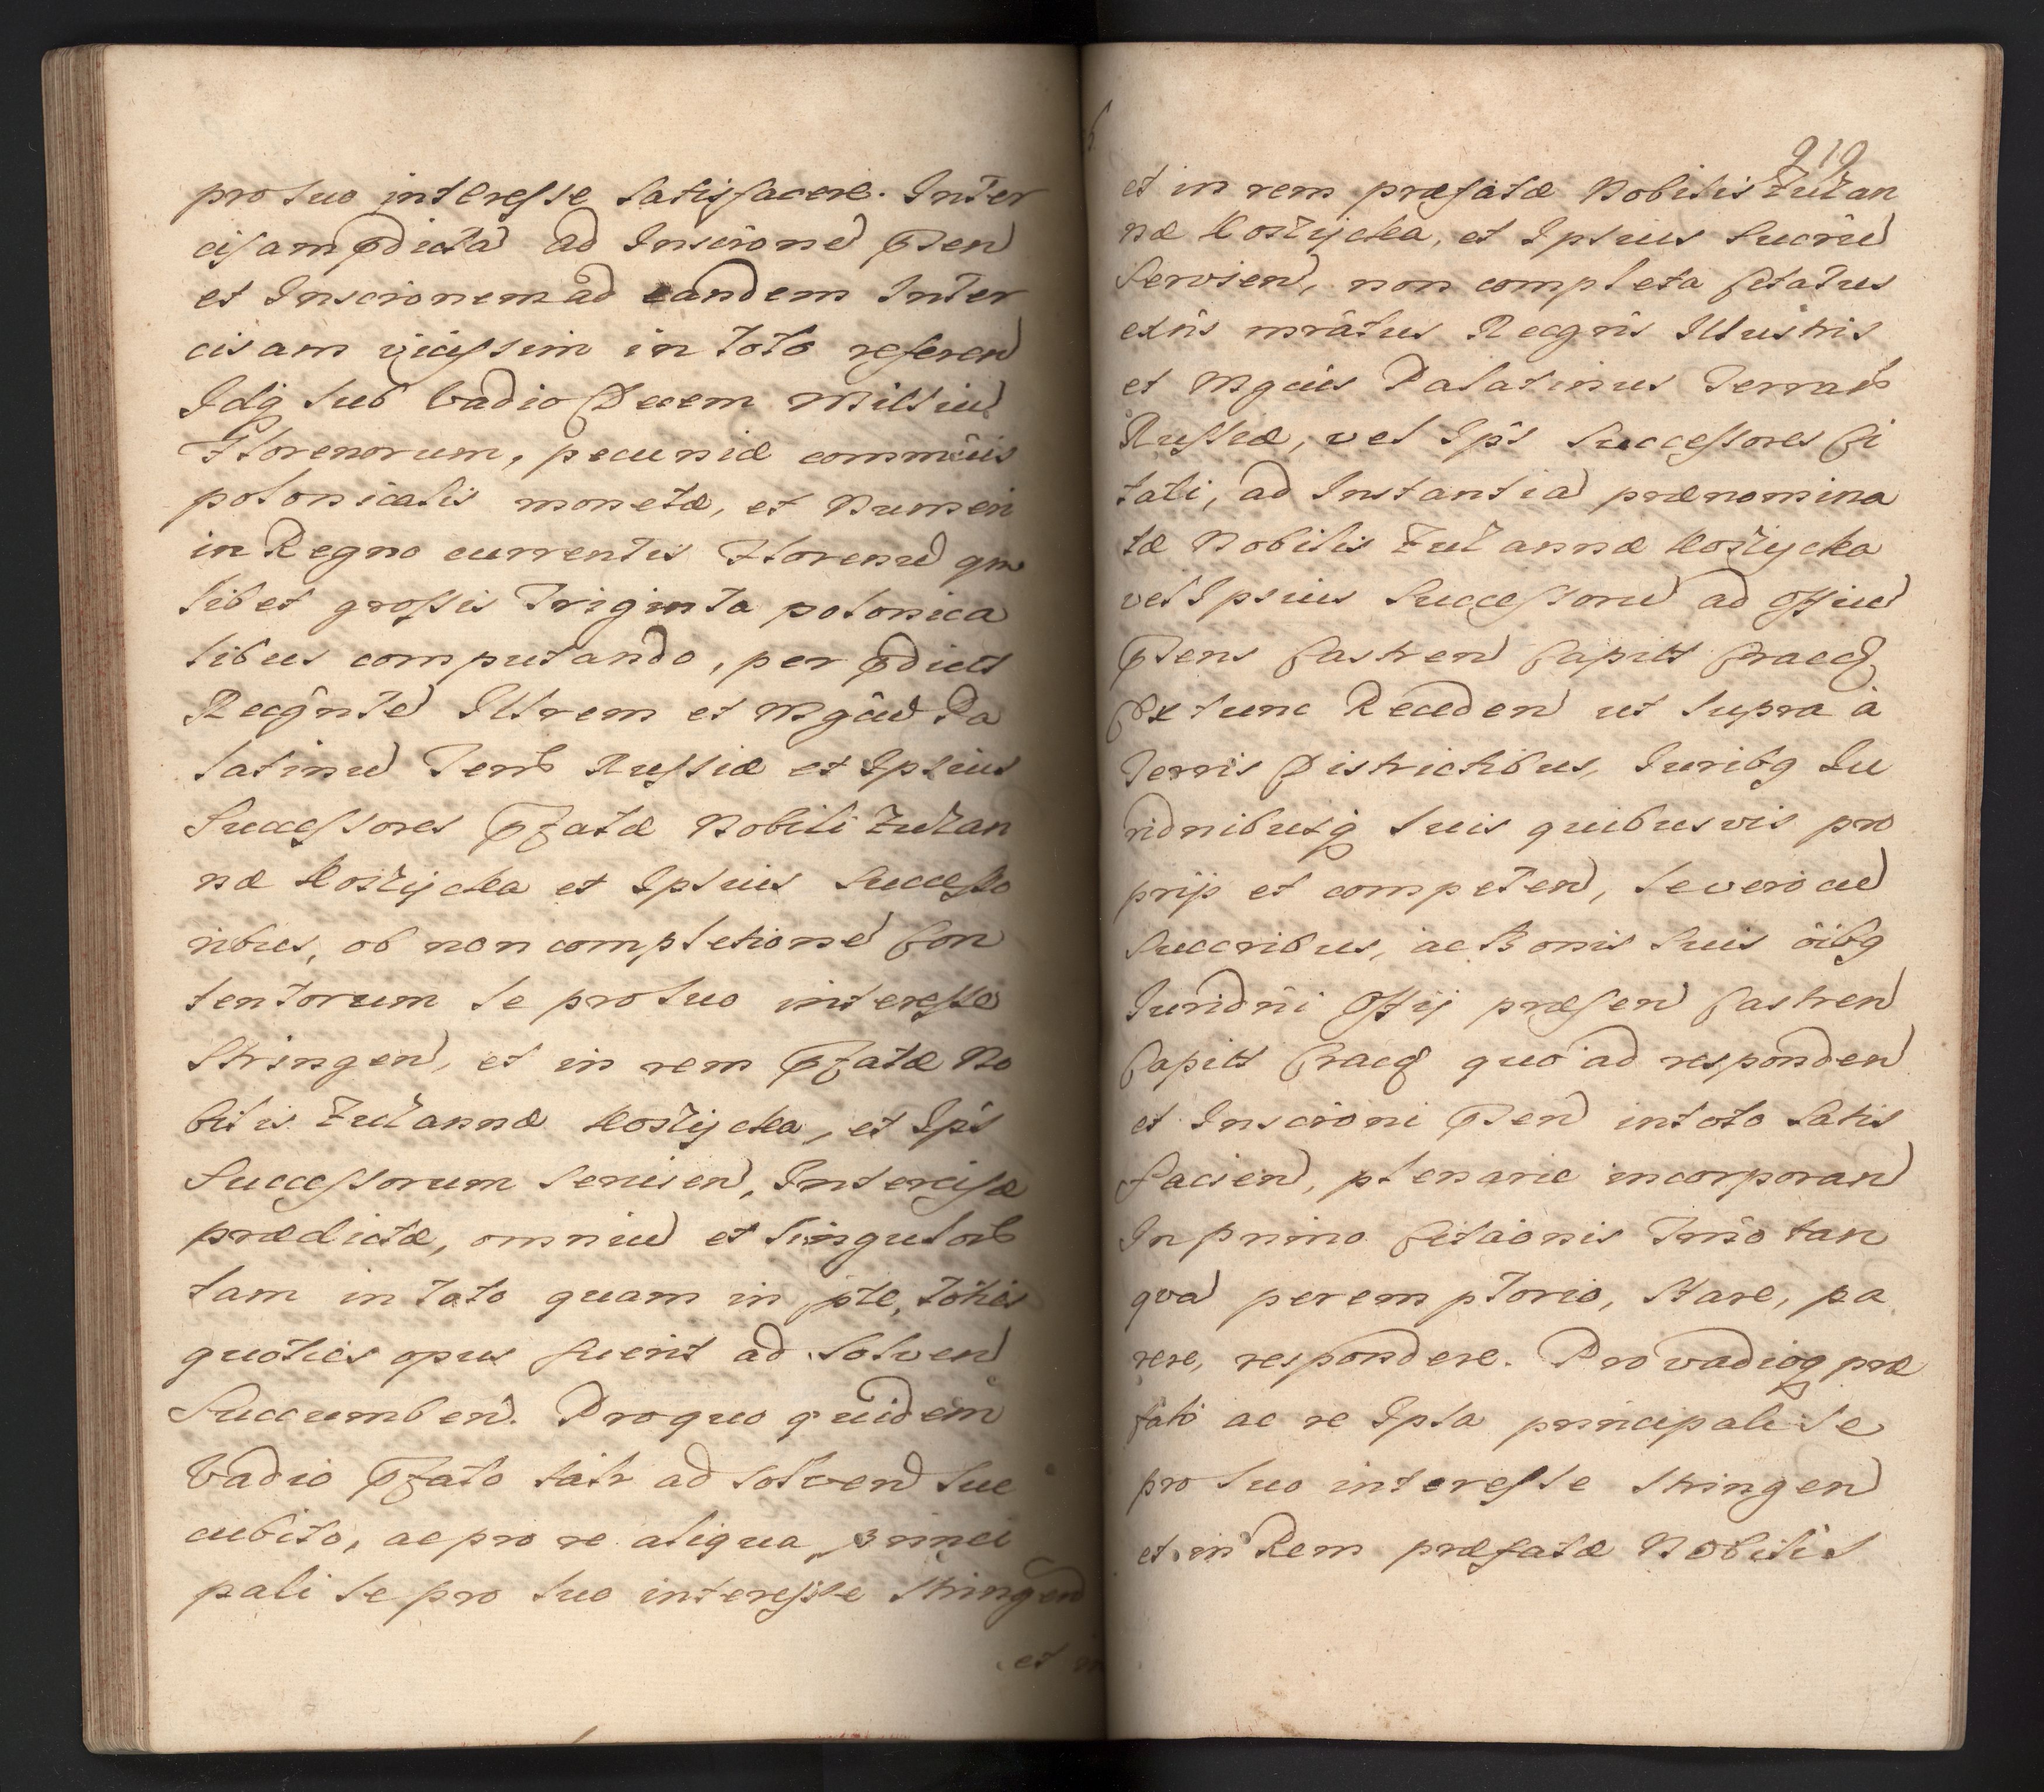 pro suo interesse satisfacere. Inter
cisam pdictã ad Inscrõnẽ pñen
et Inscrõnem ad eandem Inter
cisam vicissim in toto referen
Idq̃ sub vadio Decem Milliũ
Florenorum, pecuniæ commũis
polonicalis monetæ, et Numeri
in Regno currentis Florenũ qm
libet grossis Triginta polonica
libus computando, per pdict
Recgñtẽ Illrem et Mgcũ Pa
latinũ Terr Russiæ et Ipsius
Successores pfatæ Nobili Zuzan
næ Kostycka et Ipsius Successo
ribus, ob non completionẽ Con
tentorum se pro suo interesse
stringen, et in rem pfatæ No
bilis Zuzannæ Kostycka, et Ips
Successorum servien, Intercisæ
prædictæ, omniũ et singulor
tam in toto quam in pte, toties
quoties opus fuerit ad solven
succumben. Pro quo quidem
Vadio pfato talr ad solven suc
cubito, ac pro re aliqua princi
pali se pro suo interesse stringen
et in
219
et in rem præfatæ Nobilis Zuzan
næ Kostycka, et Ipsius Sucrũ
Servien, non completa Citatus
exñs mrãtus Recgñs Illustris
et Mgcus Palatinus Terrar
Russiæ, vel Ips Successores Ci
tati, ad Instantiã prænomina
tæ Nobilis Zuzannæ Kostycka
vel Ipsius Successorũ ad Offiũ
pñens Castren Capitt Crac
Ex tunc Receden ut supra à
Terris Districtibus, Juribq Ju
ridnibusq̃ suis quibusvis pro
prijs et competen, se vero cũ
Succribus, ac Bonis suis õibq
Juridñi Offij præsen Castren
Capitt Crac quo ad responden
et Inscrõni pñen in toto satis
facien, plenarie incorporan
In primo Citaõnis Trño tan
qvã peremptorio, stare, pa
rere, respondere. Pro vadioq̃ præ
fato ac re Ipsa principali se
pro suo interesse stringen
et in Rem præfatæ Nobilis